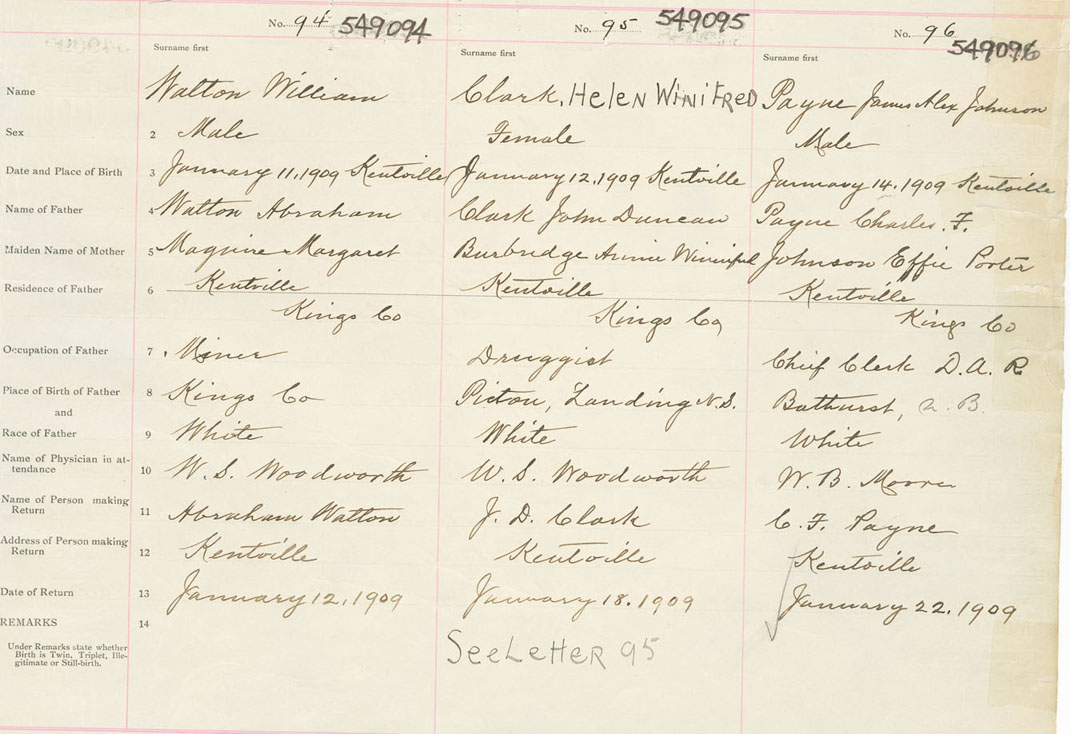 No. 94 549094 No. 95 549095 No. 96 549096
Surname first Surname first Surname first
Name Walton William Clark, Helen Winifred Payne James Alex Johnson
Sex 2 Male Female Male
Date and Place of Birth 3 January 11, 1909 Kentville January 12, 1909 Kentville January 14, 1909 Kentville
Name of Father 4 Walton Abraham Clark John Duncan Payne Charles. F.
Maiden Name of Mother 5 Maguire Margaret Burbridge Annie Johnson Effie Porter
Residence of Father 6 Kentville Kentville Kentville
Kings Co Kings Co Kings Co
Occupation of Father 7 Miner Druggist Chief Clerk D. A. R
Place of Birth of Father 8 Kings Co Picton, Landing N.S. Bathurst, N. B.
and
Race of Father 9 White White White
Name of Physician in at-
tendance 10 W. S. Woodworth W. S. Woodworth W. B. Moore
Name of Person making
Return 11 Abraham Walton J. D. Clark C. F. Payne
Address of Person making
Return 12 Kentville Kentville Kentville
Date of Return 13 January 12, 1909 January 18. 1909 January 22, 1909
REMARKS 14
Under Remarks state whether
Birth is Twin, Triplet, Ille-
gitimate or Still-birth.
See Letter 95